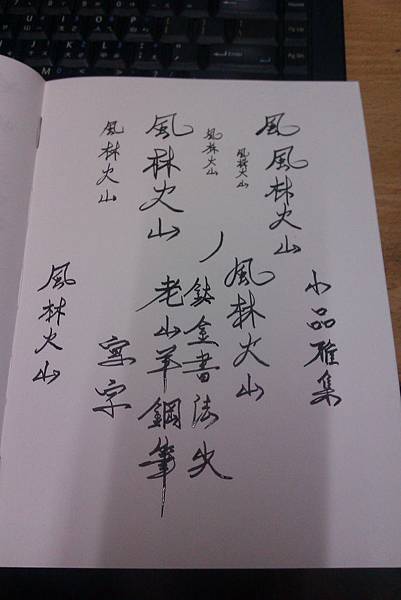 風
風林火山
風林火山
風林火山
風林火山
風林火山
小品雅集
風林火山
鈦金書法尖
老山羊鋼筆
寫字
風林火山